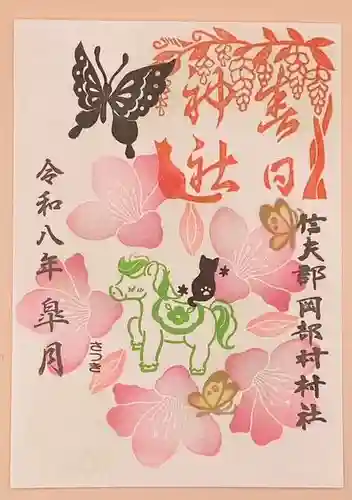 春日
神社
信夫郡岡部村村社
令和八年 皐月
さつき